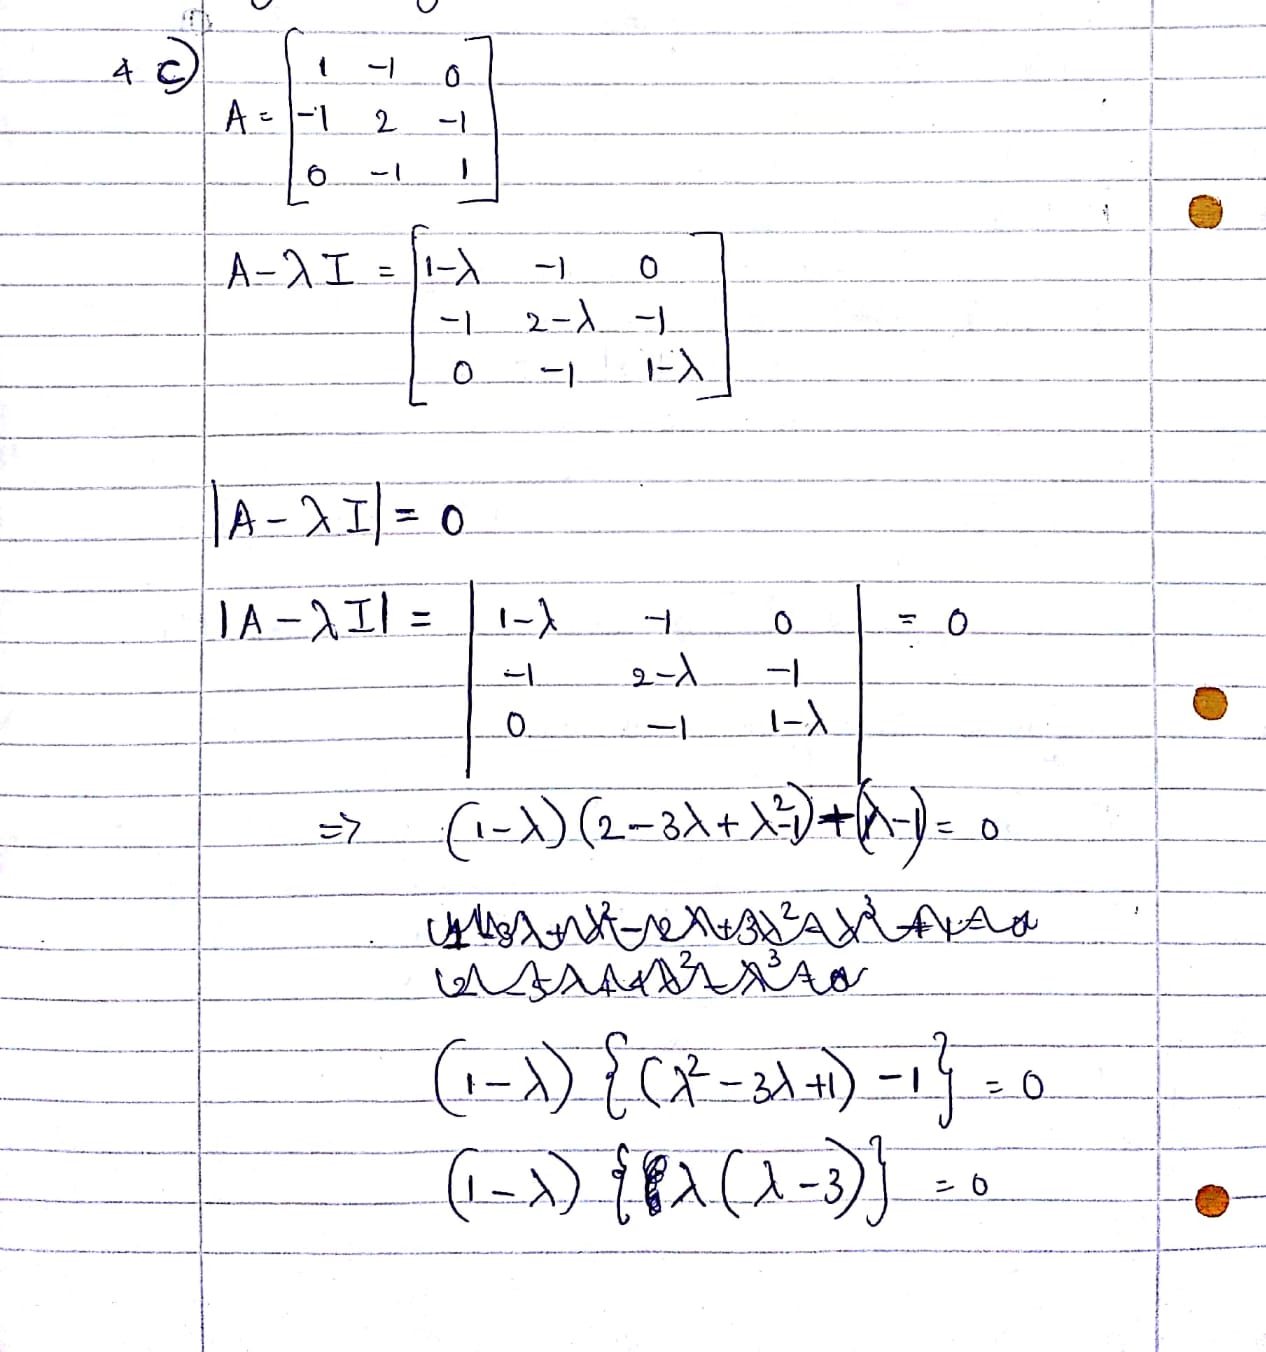 4 c)
A = [ 1 -1 0
-1 2 -1
0 -1 1 ]
A-λI = [ 1-λ -1 0
-1 2-λ -1
0 -1 1-λ ]
|A-λI| = 0
|A-λI| = | 1-λ -1 0 | = 0
-1 2-λ -1
0 -1 1-λ
=> (1-λ)(2-3λ+λ²-1)+(λ-1) = 0
(1-λ) {(λ²-3λ+1) -1} = 0
(1-λ) {λ(λ-3)} = 0